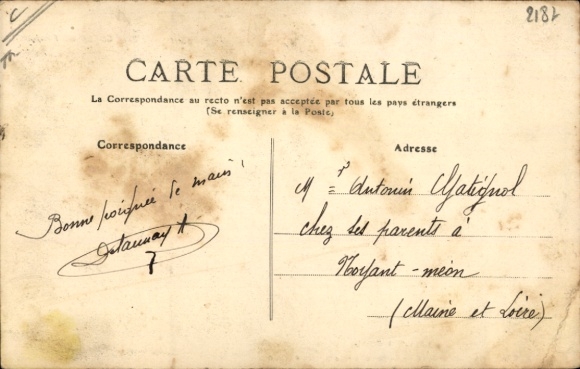 2182
CARTE POSTALE
La Correspondance au recto n'est pas acceptée par tous les pays étrangers
(Se renseigner à la Poste)
Correspondance
Bonne poignée de main!
Delaunay A
7
Adresse
Mr Antonin
chez ses parents à
Noyant-méon
(Maine et Loire)